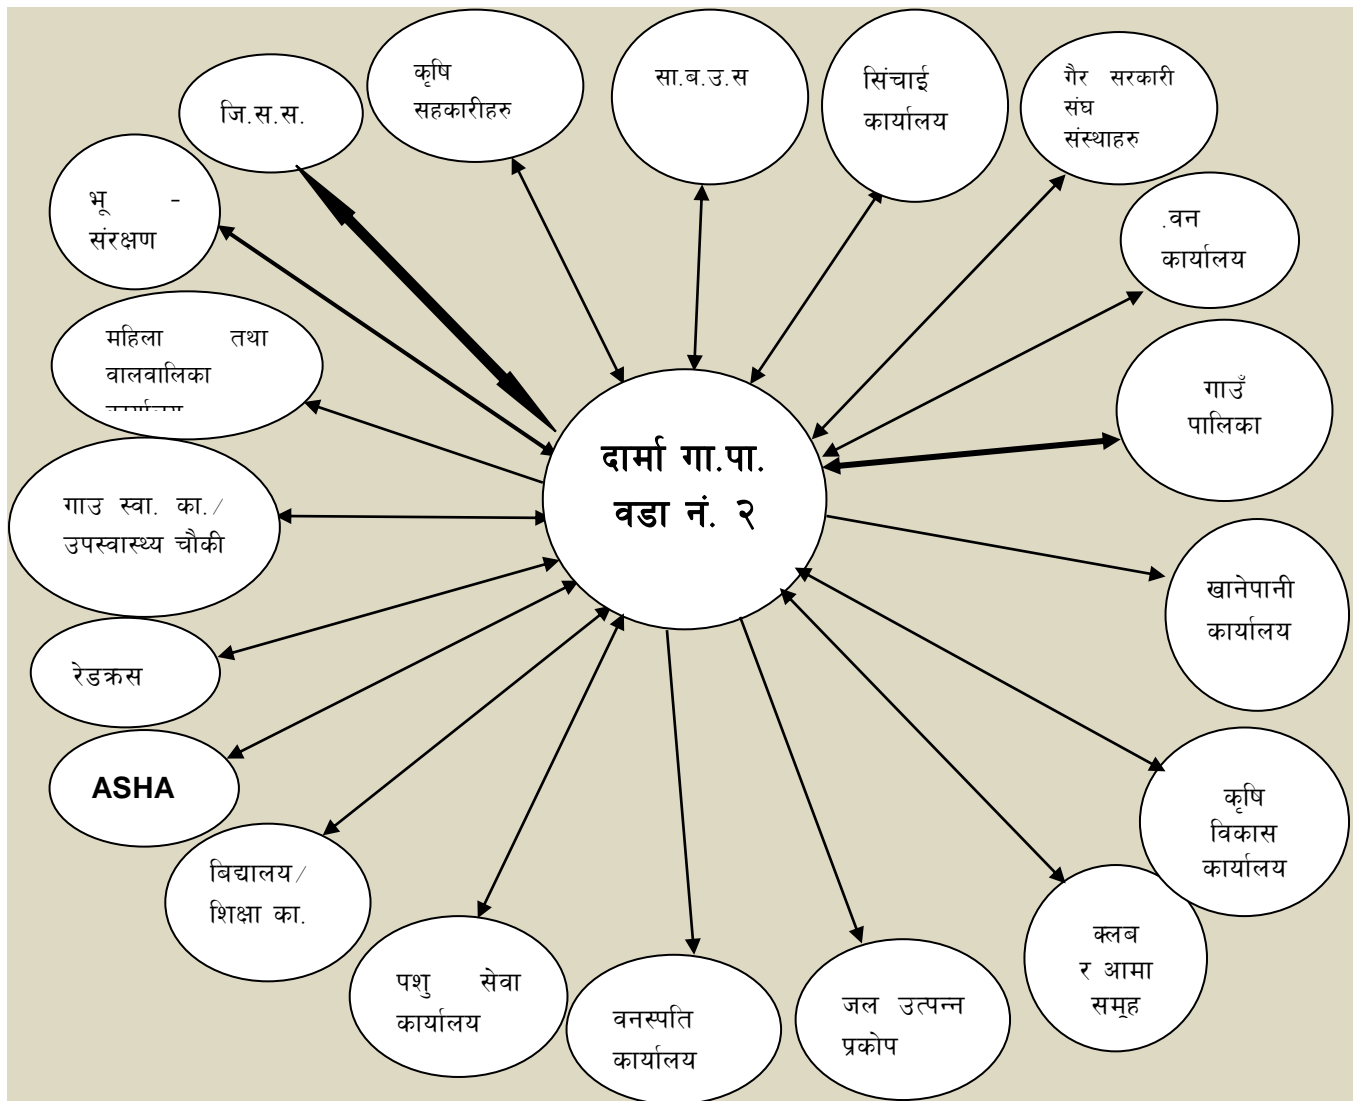 जि.स.स.
कृषि
सहकारीहरु
सा.ब.उ.स
सिंचाई
कार्यालय
गैर सरकारी
संघ
संस्थाहरु
.वन
कार्यालय
गाउँ
पालिका
खानेपानी
कार्यालय
कृषि
विकास
कार्यालय
क्लब
र आमा
समूह
जल उत्पन्न
प्रकोप
वनस्पति
कार्यालय
पशु सेवा
कार्यालय
बिद्यालय/
शिक्षा का.
ASHA
रेडक्रस
गाउ स्वा. का./
उपस्वास्थ्य चौकी
महिला तथा
वालवालिका
भू -
संरक्षण
दार्मा गा.पा.
वडा नं. २